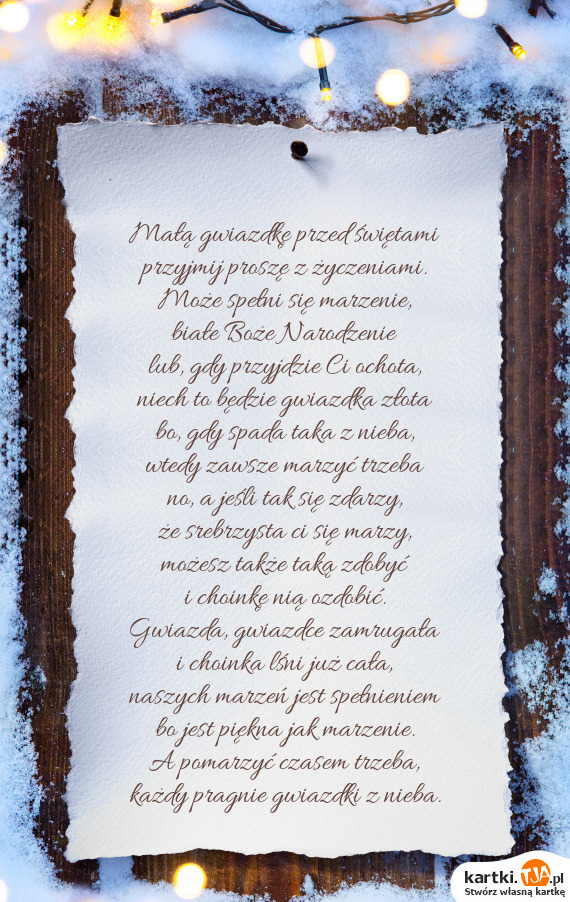 Małą gwiazdkę przed świętami
przyjmij proszę z życzeniami.
Może spełni się marzenie,
białe Boże Narodzenie
lub, gdy przyjdzie Ci ochota,
niech to będzie gwiazdka złota
bo, gdy spada taka z nieba,
wtedy zawsze marzyć trzeba
no, a jeśli tak się zdarzy,
że srebrzysta ci się marzy,
możesz także taką zdobyć
i choinkę nią ozdobić.
Gwiazda, gwiazdce zamrugała
i choinka lśni już cała,
naszych marzeń jest spełnieniem
bo jest piękna jak marzenie.
A pomarzyć czasem trzeba,
każdy pragnie gwiazdki z nieba.
kartki.TJA.pl
Stwórz własną kartkę